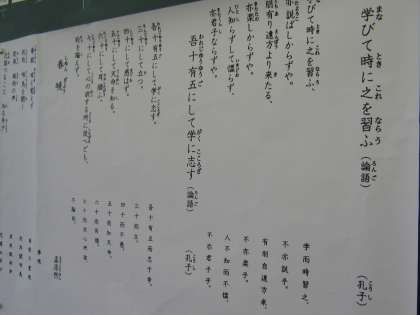 学びて時に之を習ふ（論語）（孔子）
学びて時に之を習ふ、
亦説ばしからずや。
朋有り遠方より来たる、
亦楽しからずや。
人知らずして慍らず、
亦君子ならずや。
学而時習之、
不亦説乎。
有朋自遠方来、
不亦楽乎。
人不知而不慍、
不亦君子乎。
吾十有五にして学に志す（論語）（孔子）
吾十有五にして学に志す。
三十にして立つ。
四十にして惑はず。
五十にして天命を知る。
六十にして耳順ふ。
七十にして心の欲する所に従へども、
矩を踰えず。
吾十有五而志于学。
三十而立。
四十而不惑。
五十而知天命。
六十而耳順。
七十而従心所欲、
不踰矩。
春暁
孟浩然